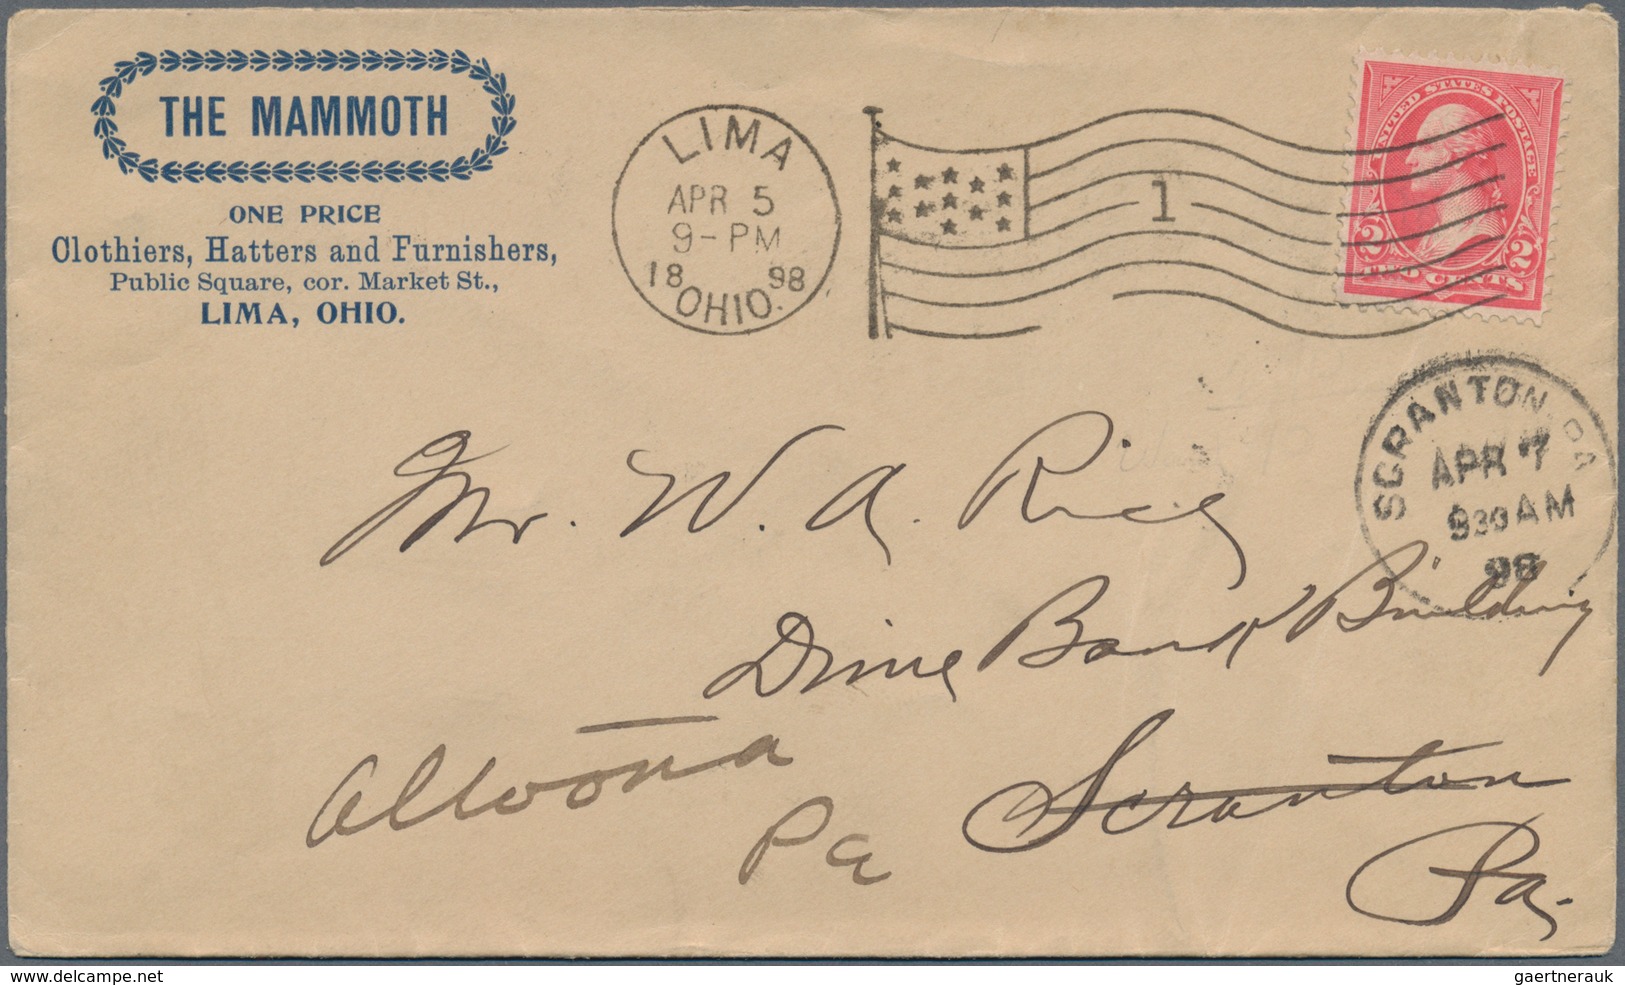 THE MAMMOTH
ONE PRICE
Clothiers, Hatters and Furnishers,
Public Square, cor. Market St.,
LIMA, OHIO.
LIMA
APR 5
9-PM
18 98
OHIO.
1
UNITED STATES POSTAGE
2 2
TWO CENTS
SCRANTON, PA
APR 7
930AM
98
Mr. W. A. Rice
Dime Bank Building
Scranton
Pa.
Altoona
Pa
www.delcampe.net
gaertnerauk